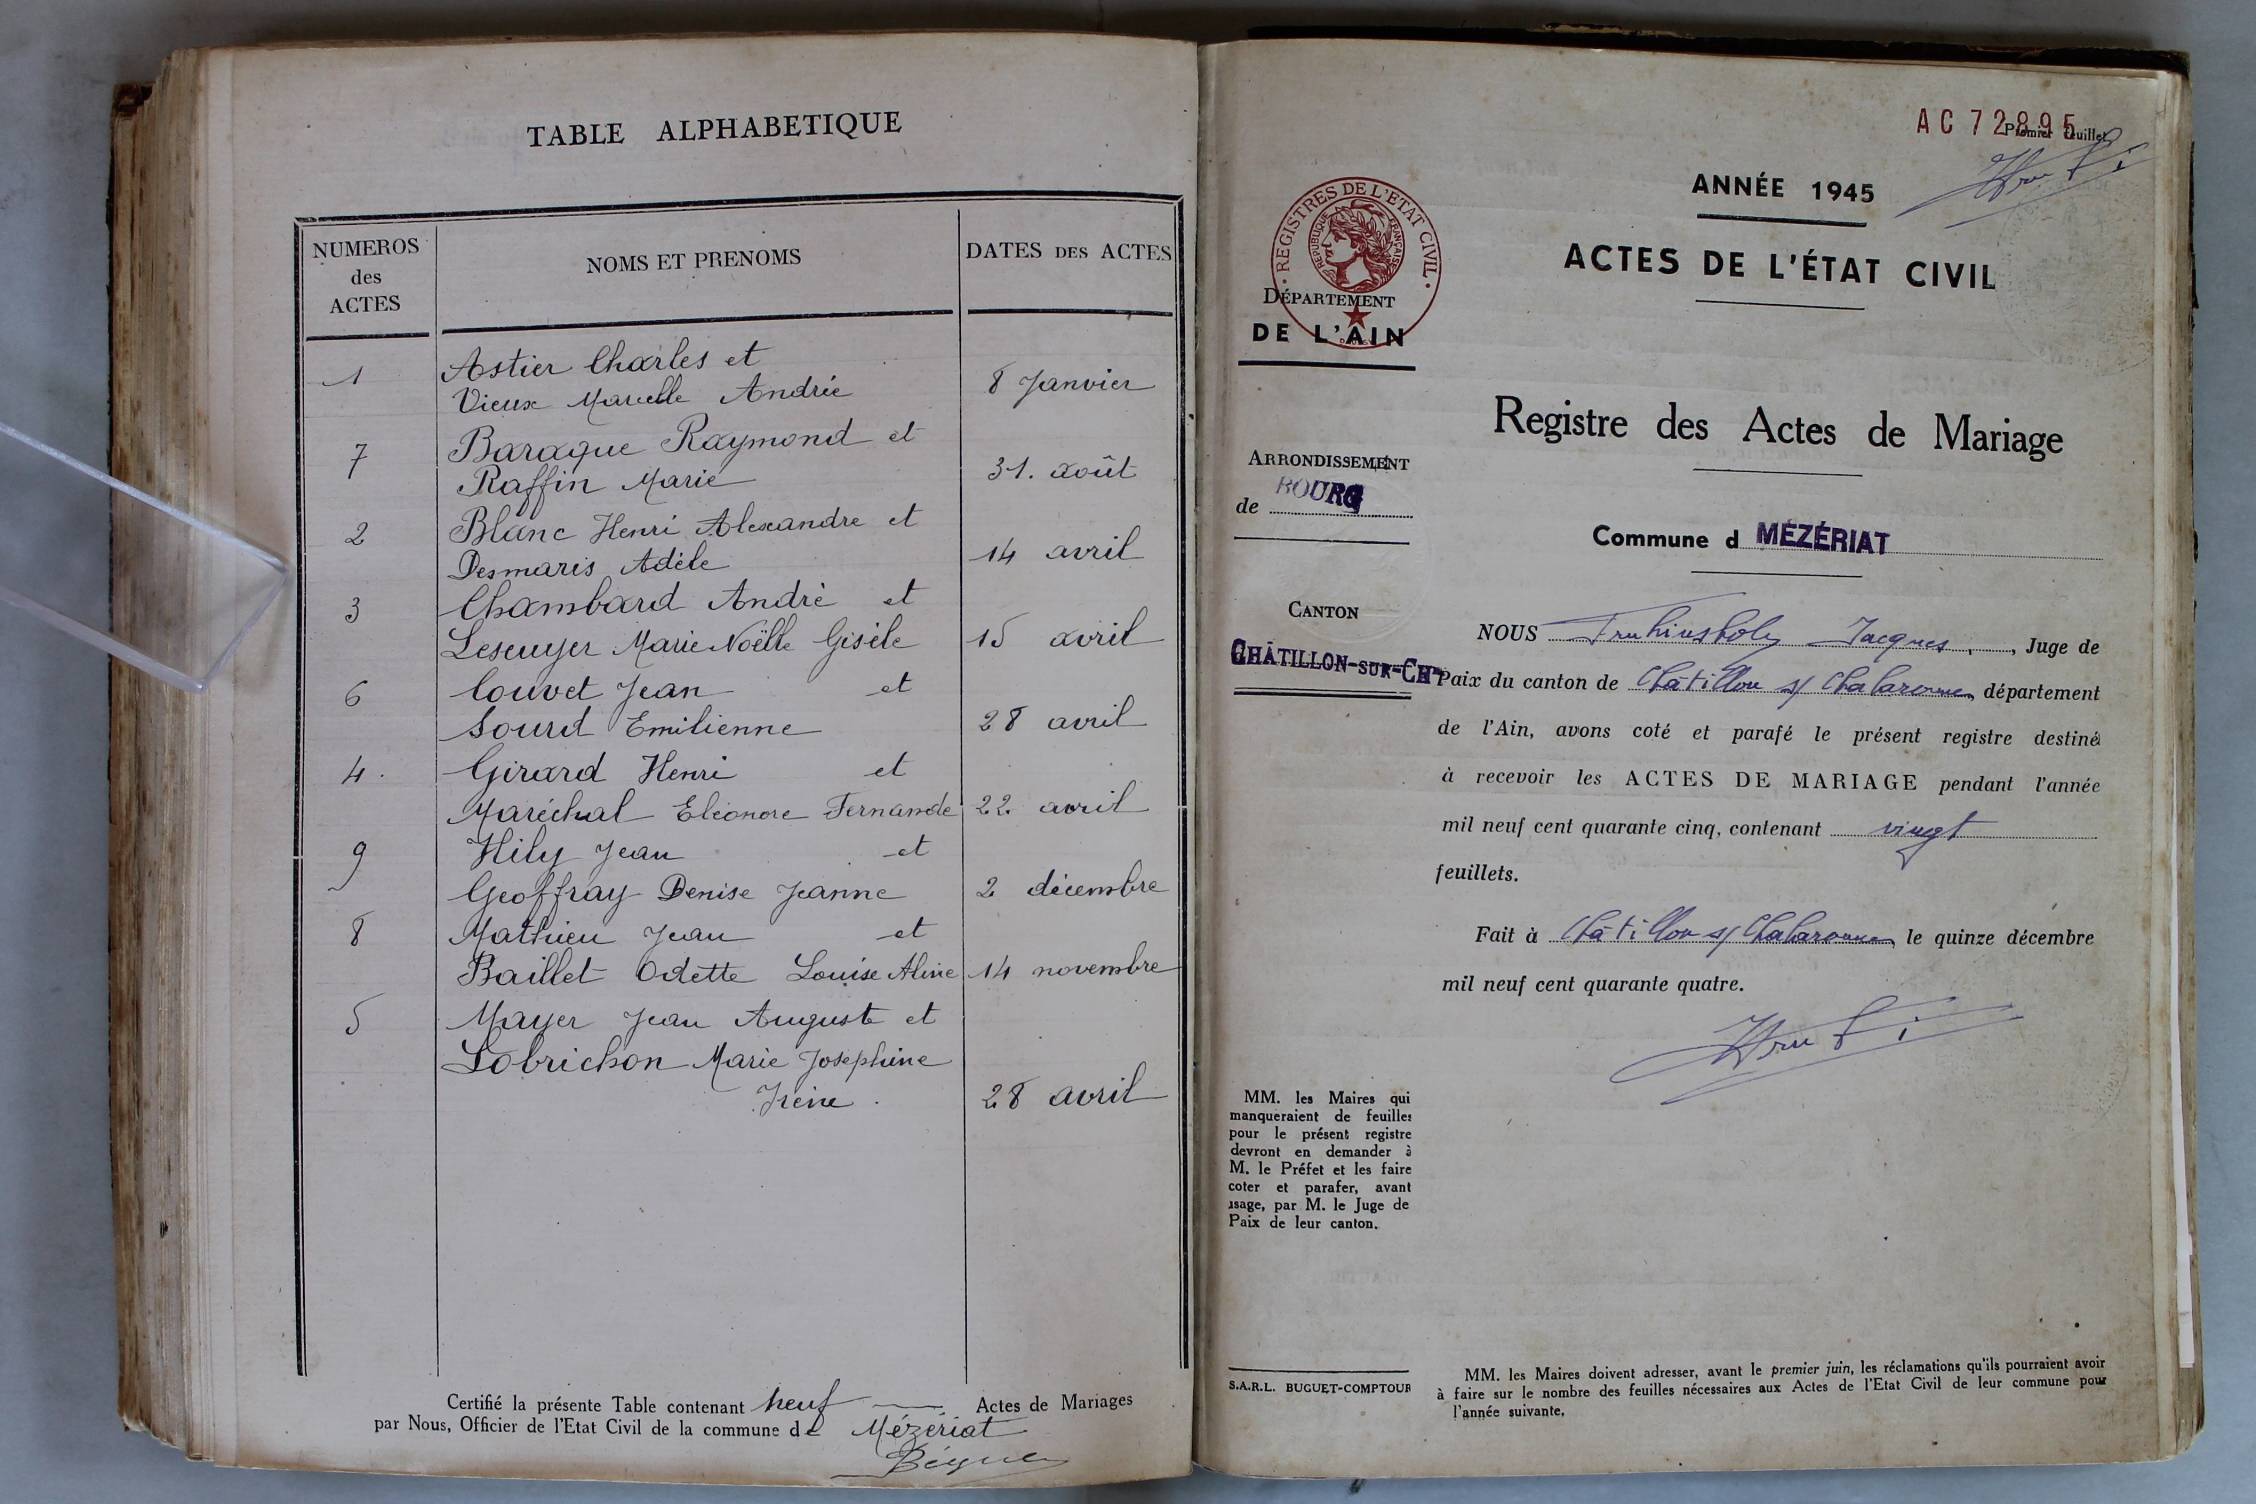 TABLE ALPHABETIQUE
NUMEROS
des
ACTES
NOMS ET PRENOMS
DATES DES ACTES
1
Astier Charles et
Vieux Marcelle Andrée
8 Janvier
7
Baraque Raymond et
Raffin Marie
31. août
2
Blanc Henri Alexandre et
Desmaris Adèle
14 avril
3
Chambard André et
Lescuyer Marie Noëlle Gisèle
15 avril
6
Couvet Jean et
Sourd Emilienne
28 avril
4.
Girard Henri et
Maréchal Eléonore Fernande
22 avril
9
Hily Jean et
Geoffray Denise Jeanne
2 décembre
8
Mathieu Jean et
Baillet Odette Louise Aline
14 novembre
5
Mayer Jean Auguste et
Lobrichon Marie Josephine
Irène.
28 avril
Certifié la présente Table contenant neuf Actes de Mariages
par Nous, Officier de l'Etat Civil de la commune de Mézériat
AC 72895
Premier feuillet
ANNÉE 1945
ACTES DE L'ÉTAT CIVIL
REGISTRES DE L'ETAT CIVIL
REPUBLIQUE FRANÇAISE
DÉPARTEMENT
DE L'AIN
Registre des Actes de Mariage
ARRONDISSEMENT
de BOURG
Commune d MÉZÉRIAT
CANTON
CHÂTILLON-SUR-CHne
NOUS Jacques, Juge de
Paix du canton de Châtillon s/ Chalaronne, département
de l'Ain, avons coté et parafé le présent registre destiné
à recevoir les ACTES DE MARIAGE pendant l'année
mil neuf cent quarante cinq, contenant vingt
feuillets.
Fait à Châtillon s/ Chalaronne, le quinze décembre
mil neuf cent quarante quatre.
MM. les Maires qui
manqueraient de feuilles
pour le présent registre
devront en demander à
M. le Préfet et les faire
coter et parafer, avant
usage, par M. le Juge de
Paix de leur canton.
S.A.R.L. BUGUET-COMPTOUR
MM. les Maires doivent adresser, avant le premier juin, les réclamations qu'ils pourraient avoir
à faire sur le nombre des feuilles nécessaires aux Actes de l'Etat Civil de leur commune pour
l'année suivante.